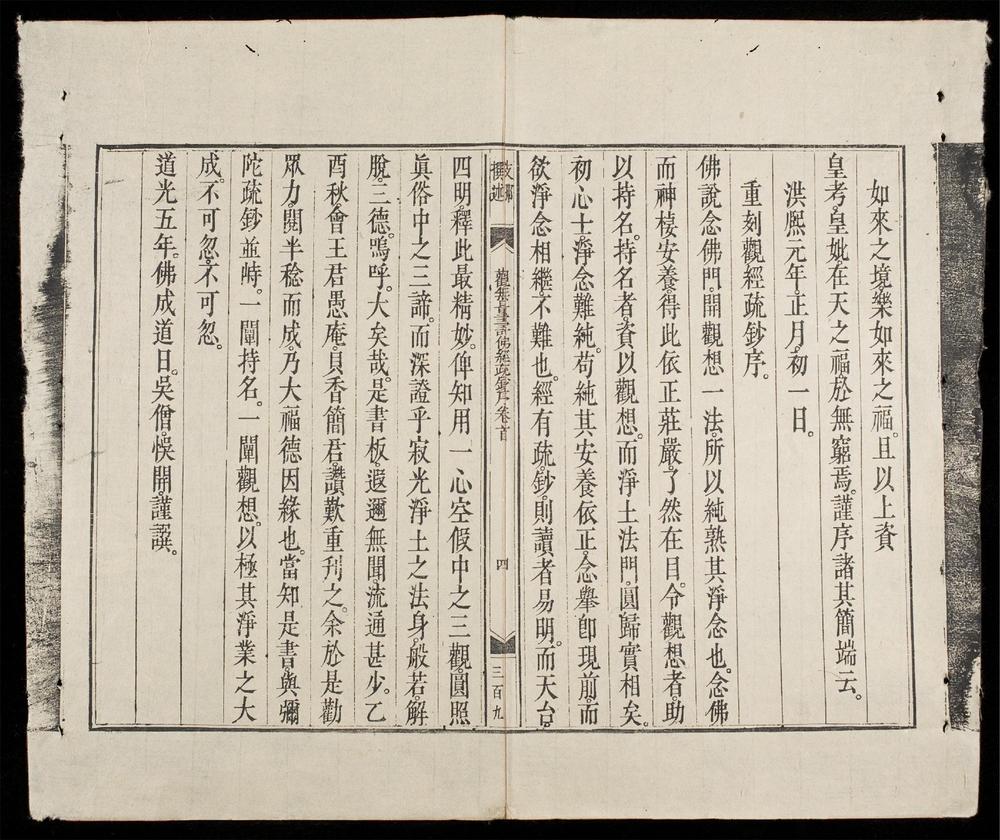 如來之境樂如來之福。且以上資
皇考皇妣在天之福於無窮焉。謹序諸其簡端云。
洪熙元年正月初一日。
重刻觀經疏鈔序。
佛說念佛門。開觀想一法。所以純熟其淨念也。念佛
而神棲安養。得此依正莊嚴。了然在目。令觀想者。助
以持名。持名者。資以觀想。而淨土法門。圓歸實相矣。
初心士。淨念難純。苟純其安養依正。念舉卽現前。而
欲淨念相繼不難也。經有疏。鈔。則讀者易明。而天台。
支那
撰述
觀無量壽佛經疏鈔序卷首
四
三百九
四明。釋此最精妙。俾知用一心空假中之三觀。圓照
眞俗中之三諦。而深證乎寂光淨土之法身。般若。解
脫。三德。嗚呼。大矣哉。是書板。遐邇無聞。流通甚少。乙
酉秋。會王君愚庵。貝香簡君。讚歎重刊之。余於是勸
眾力。閱半稔而成。乃大福德因緣也。當知是書。與彌
陀疏鈔並峙。一闡持名。一闡觀想。以極其淨業之大
成。不可忽。不可忽。
道光五年。佛成道日。吳僧。悞開。謹譔。